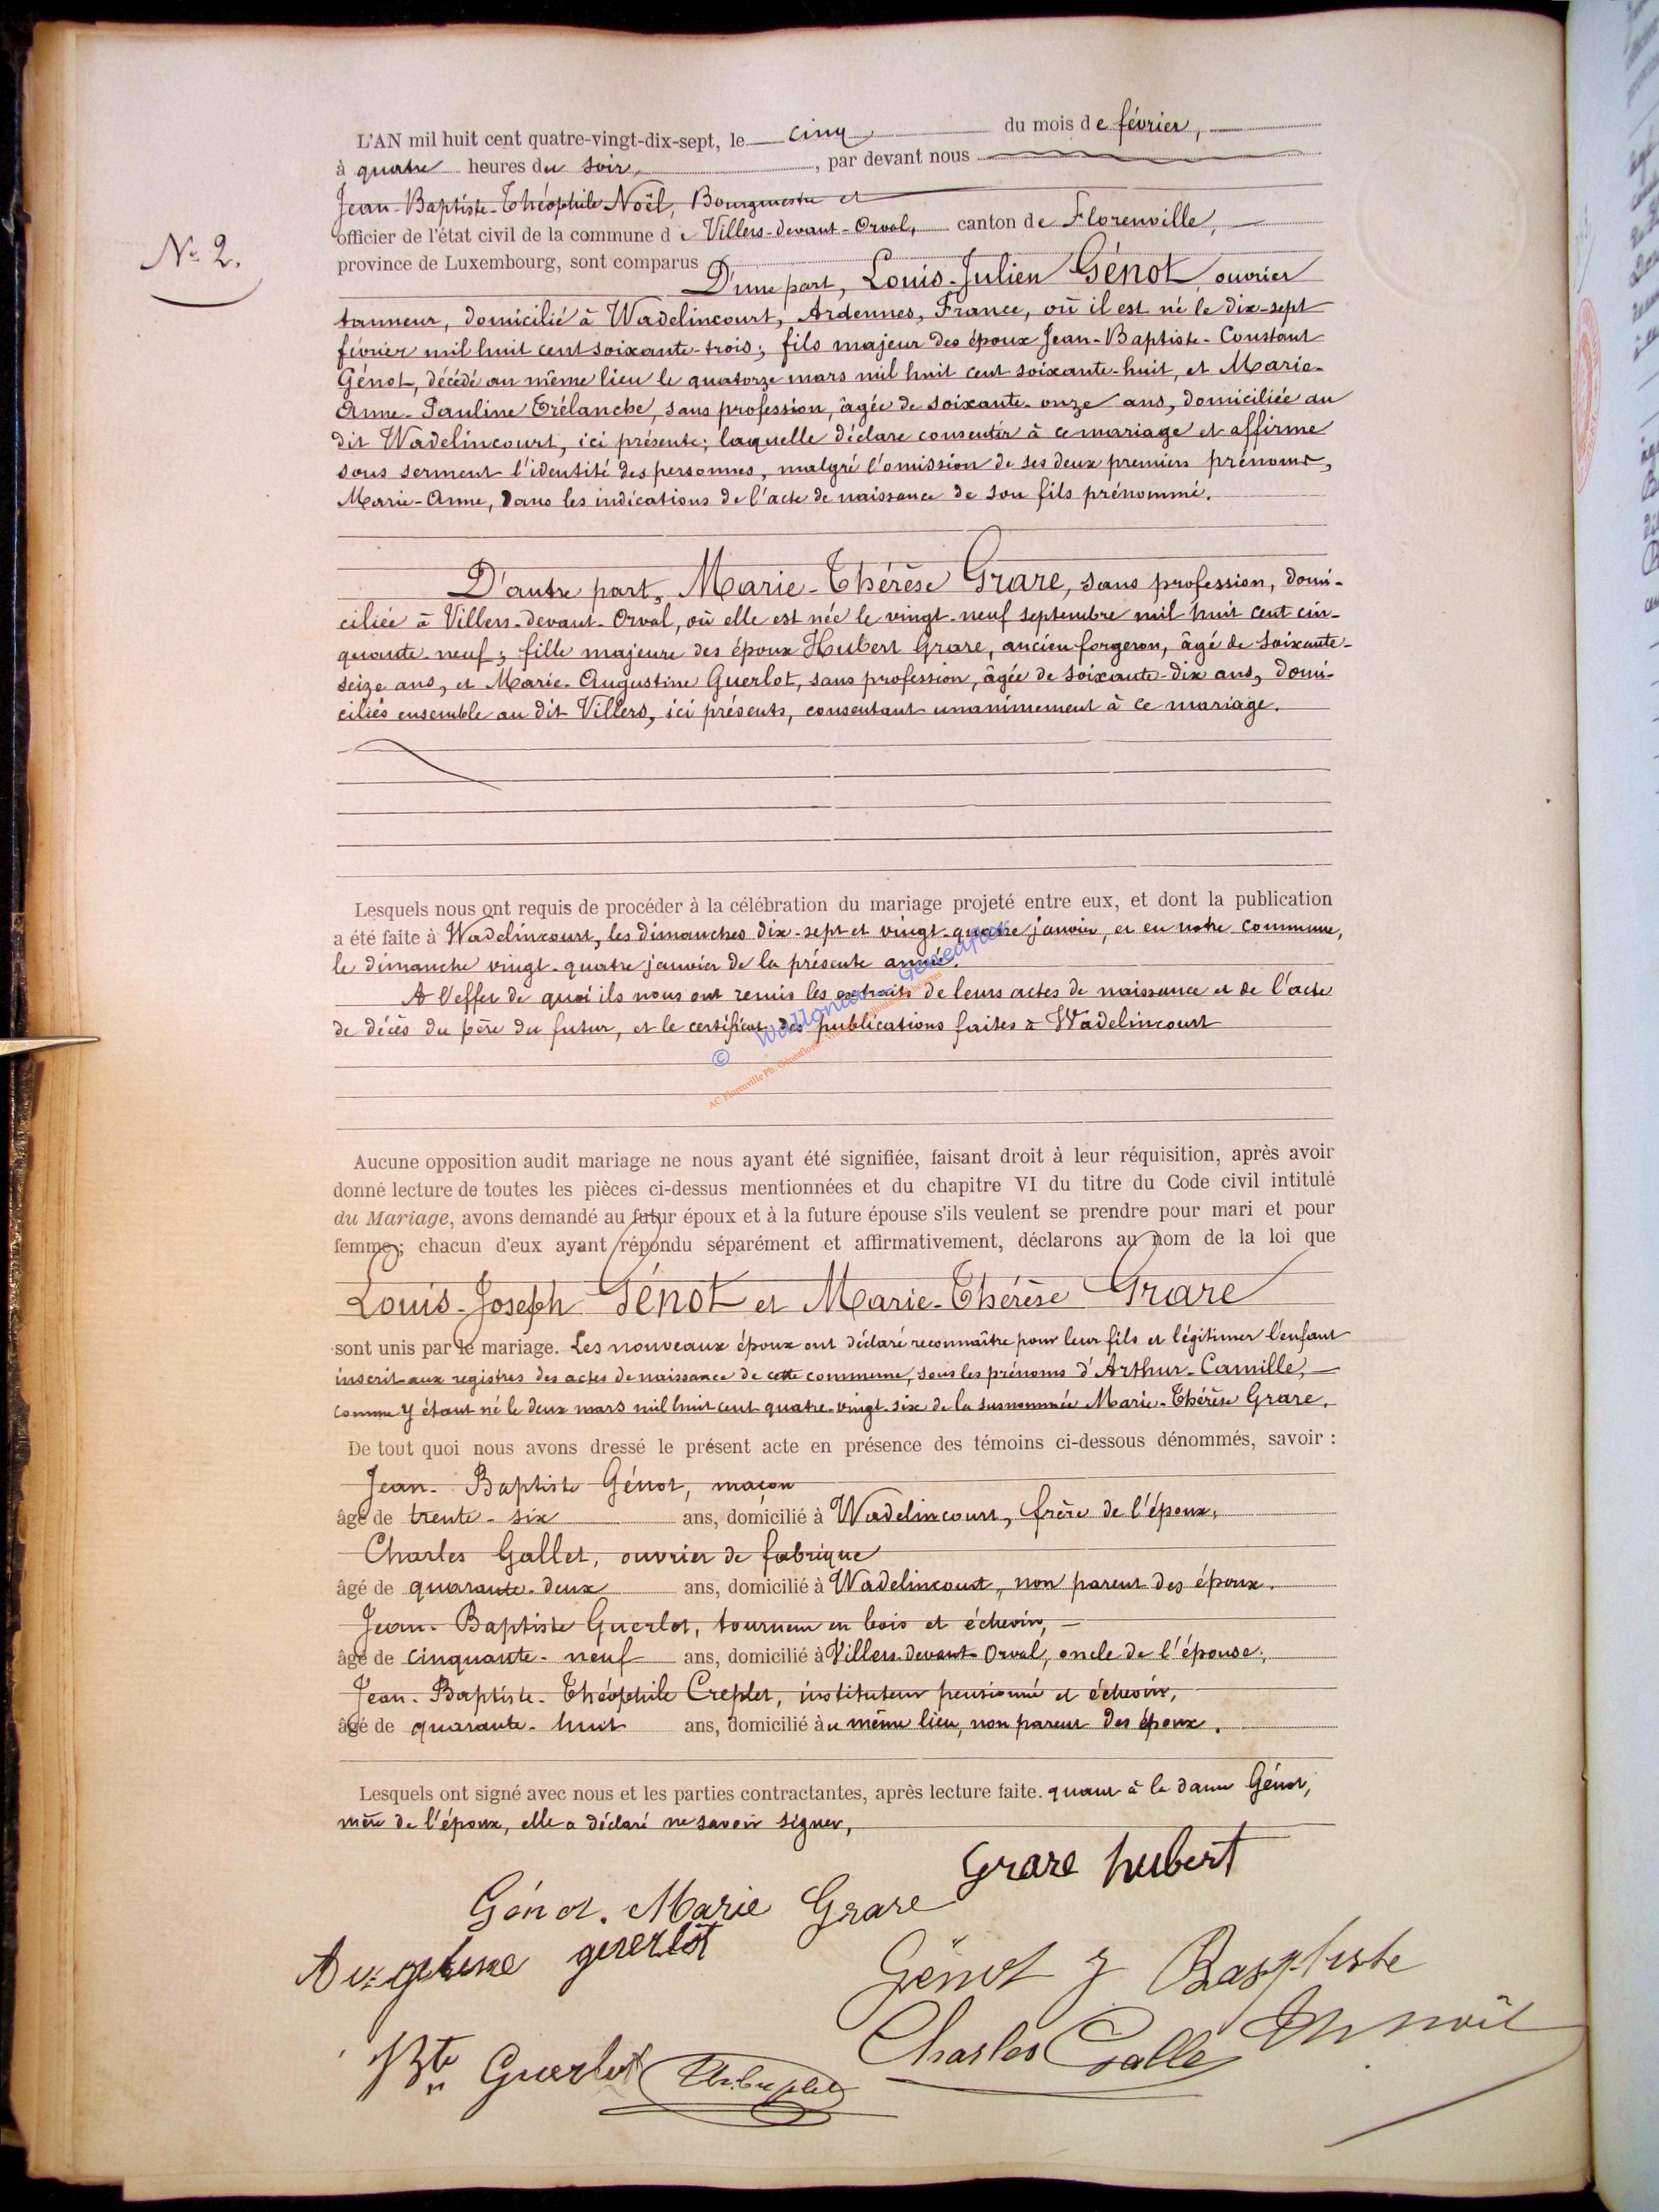 L'AN mil huit cent quatre-vingt-dix-sept, le cinq du mois de février,
à quatre heures du soir, par devant nous
Jean-Baptiste-Théophile Noël, Bourgmestre et
officier de l'état civil de la commune de Villers-devant-Orval, canton de Florenville,
N° 2.
province de Luxembourg, sont comparus
D'une part, Louis-Julien Génot, ouvrier
tanneur, domicilié à Wadelincourt, Ardennes, France, où il est né le dix-sept
février mil huit cent soixante-trois; fils majeur des époux Jean-Baptiste-Constant
Génot, décédé au même lieu le quatorze mars mil huit cent soixante-huit, et Marie-
Anne-Pauline Trélanche, sans profession, âgée de soixante-onze ans, domiciliée au
dit Wadelincourt, ici présente; laquelle déclare consentir à ce mariage et affirme
sous serment l'identité des personnes, malgré l'omission de ses deux premiers prénoms,
Marie-Anne, dans les indications de l'acte de naissance de son fils prénommé.
D'autre part, Marie-Thérèse Grare, sans profession, domi-
ciliée à Villers-devant-Orval, où elle est née le vingt-neuf septembre mil huit cent cin-
quante-neuf; fille majeure des époux Hubert Grare, ancien forgeron, âgé de soixante-
seize ans, et Marie-Augustine Guerlot, sans profession, âgée de soixante-dix ans, domi-
ciliés ensemble au dit Villers, ici présents, consentant unanimement à ce mariage.
Lesquels nous ont requis de procéder à la célébration du mariage projeté entre eux, et dont la publication
a été faite à Wadelincourt, les dimanches dix-sept et vingt-quatre janvier, et en notre commune,
le dimanche vingt-quatre janvier de la présente année.
A l'effet de quoi ils nous ont remis les extraits de leurs actes de naissance et de l'acte
de décès du père du futur, et le certificat des publications faites à Wadelincourt
Aucune opposition audit mariage ne nous ayant été signifiée, faisant droit à leur réquisition, après avoir
donné lecture de toutes les pièces ci-dessus mentionnées et du chapitre VI du titre du Code civil intitulé
du Mariage, avons demandé au futur époux et à la future épouse s'ils veulent se prendre pour mari et pour
femme; chacun d'eux ayant répondu séparément et affirmativement, déclarons au nom de la loi que
Louis-Joseph Génot et Marie-Thérèse Grare
sont unis par le mariage. Les nouveaux époux ont déclaré reconnaître pour leur fils et légitimer l'enfant
inscrit aux registres des actes de naissance de cette commune, sous les prénoms d'Arthur-Camille,
comme y étant né le deux mars mil huit cent quatre-vingt-six de la susnommée Marie-Thérèse Grare.
De tout quoi nous avons dressé le présent acte en présence des témoins ci-dessous dénommés, savoir :
Jean-Baptiste Génot, maçon
âgé de trente-six ans, domicilié à Wadelincourt, frère de l'époux.
Charles Gallet, ouvrier de fabrique
âgé de quarante-deux ans, domicilié à Wadelincourt, non parent des époux.
Jean-Baptiste Guerlot, tourneur en bois et échevin,
âgé de cinquante-neuf ans, domicilié à Villers-devant-Orval, oncle de l'épouse;
Jean-Baptiste-Théophile Creplet, instituteur pensionné et échevin,
âgé de quarante-huit ans, domicilié au même lieu, non parent des époux.
Lesquels ont signé avec nous et les parties contractantes, après lecture faite. quant à la dame Génot,
mère de l'époux, elle a déclaré ne savoir signer,
Grare hubert
Génot. Marie Grare
Augustine guerlot
Génot J Baptiste
Charles Gallé Th Noël
Bte Guerlot